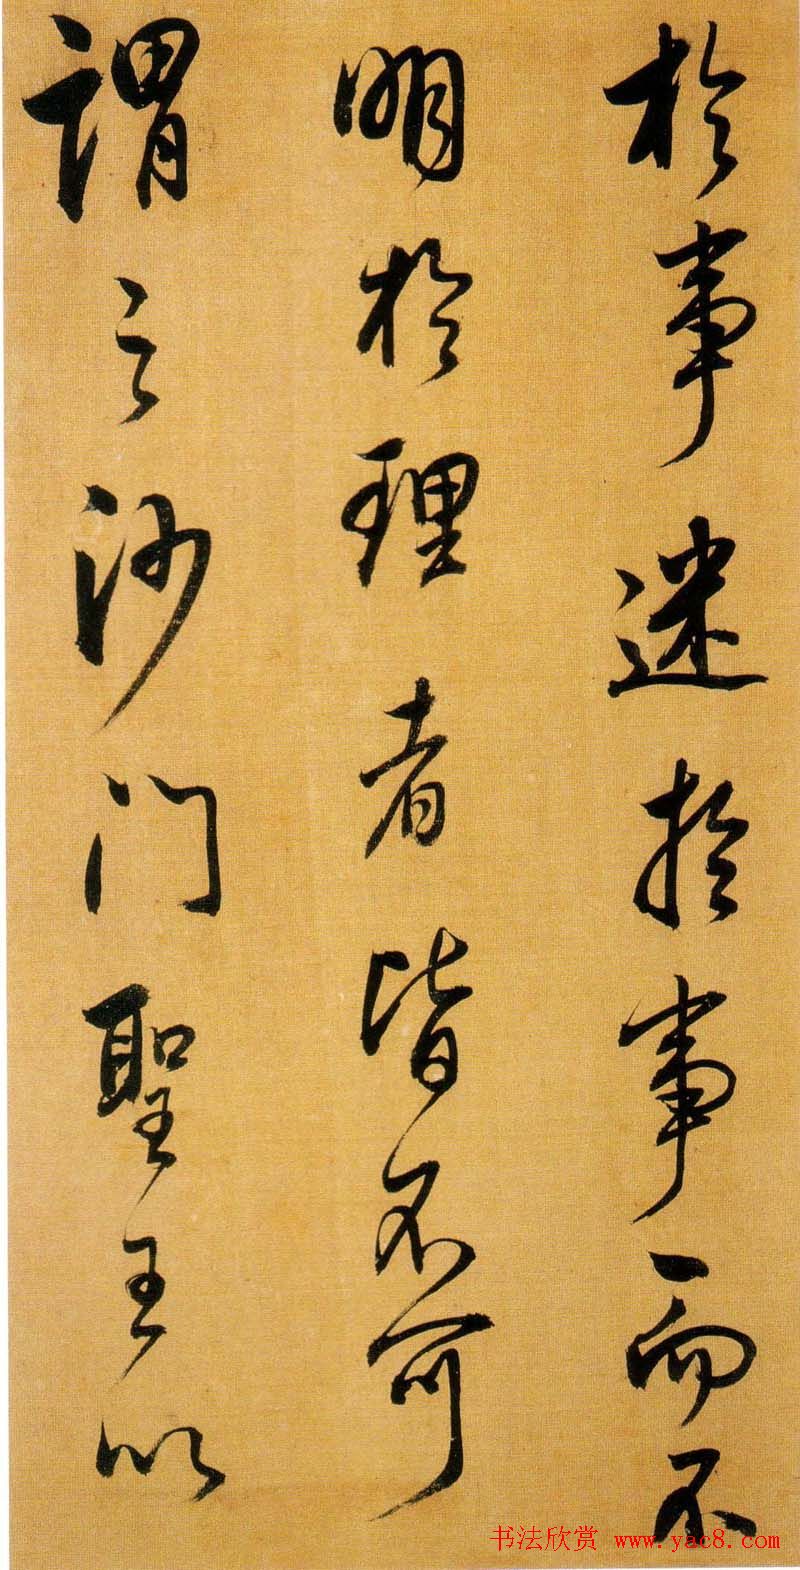 於事迷於事而不
明於理者皆不可
謂之沙门聖王以
书法欣赏 www.yac8.com